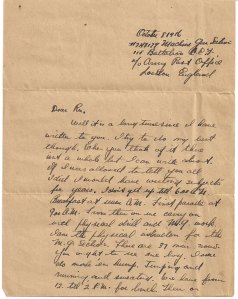 October 8 1916
Machine Gun Section
Battalion C.E.F.
c/o Army Post Office
London England
Dear Ru,
Well it is a long time since I have
written to you. I try to do my best
though. When you think of it there
isn't a whole lot I can write about.
If I was allowed to tell you all
that I would have writing subjects
for years. I don't get up till 6.00 A.M.
Breakfast at seven A.M. First parade at
A.M. From then on we carry on
with physical drill and M.G. work
I am the physical instructor for the
M.G. Section. There are 37 men now.
You ought to see me boy. Some
do make em bump. Jumping and
running and sweating. We have from
12. till 2 P.M. for lunch. Then on